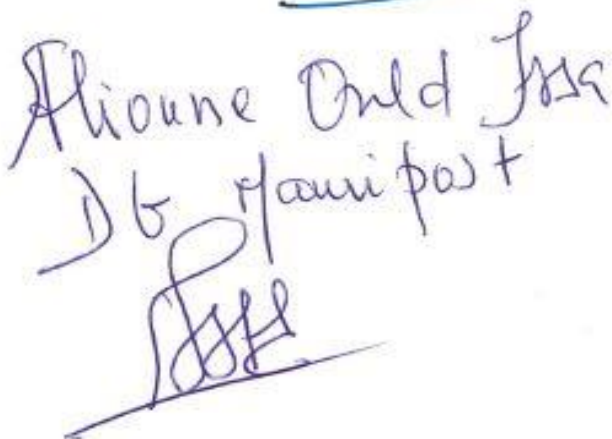 Alioune Ould Issa
DG Mauripost